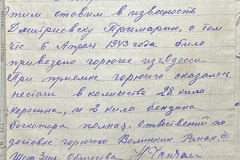 Этим ставим в известность
Дмитриевску Примарию, о том
что 6 Апреля 1943 года было
привезено горючее из Одессы.
При приемке горючего оказалось
нехватки в количестве 28 кило
керосина, и 2 кило бензина
полная. Ответственый по
доставке горючего Калинкин Роман.